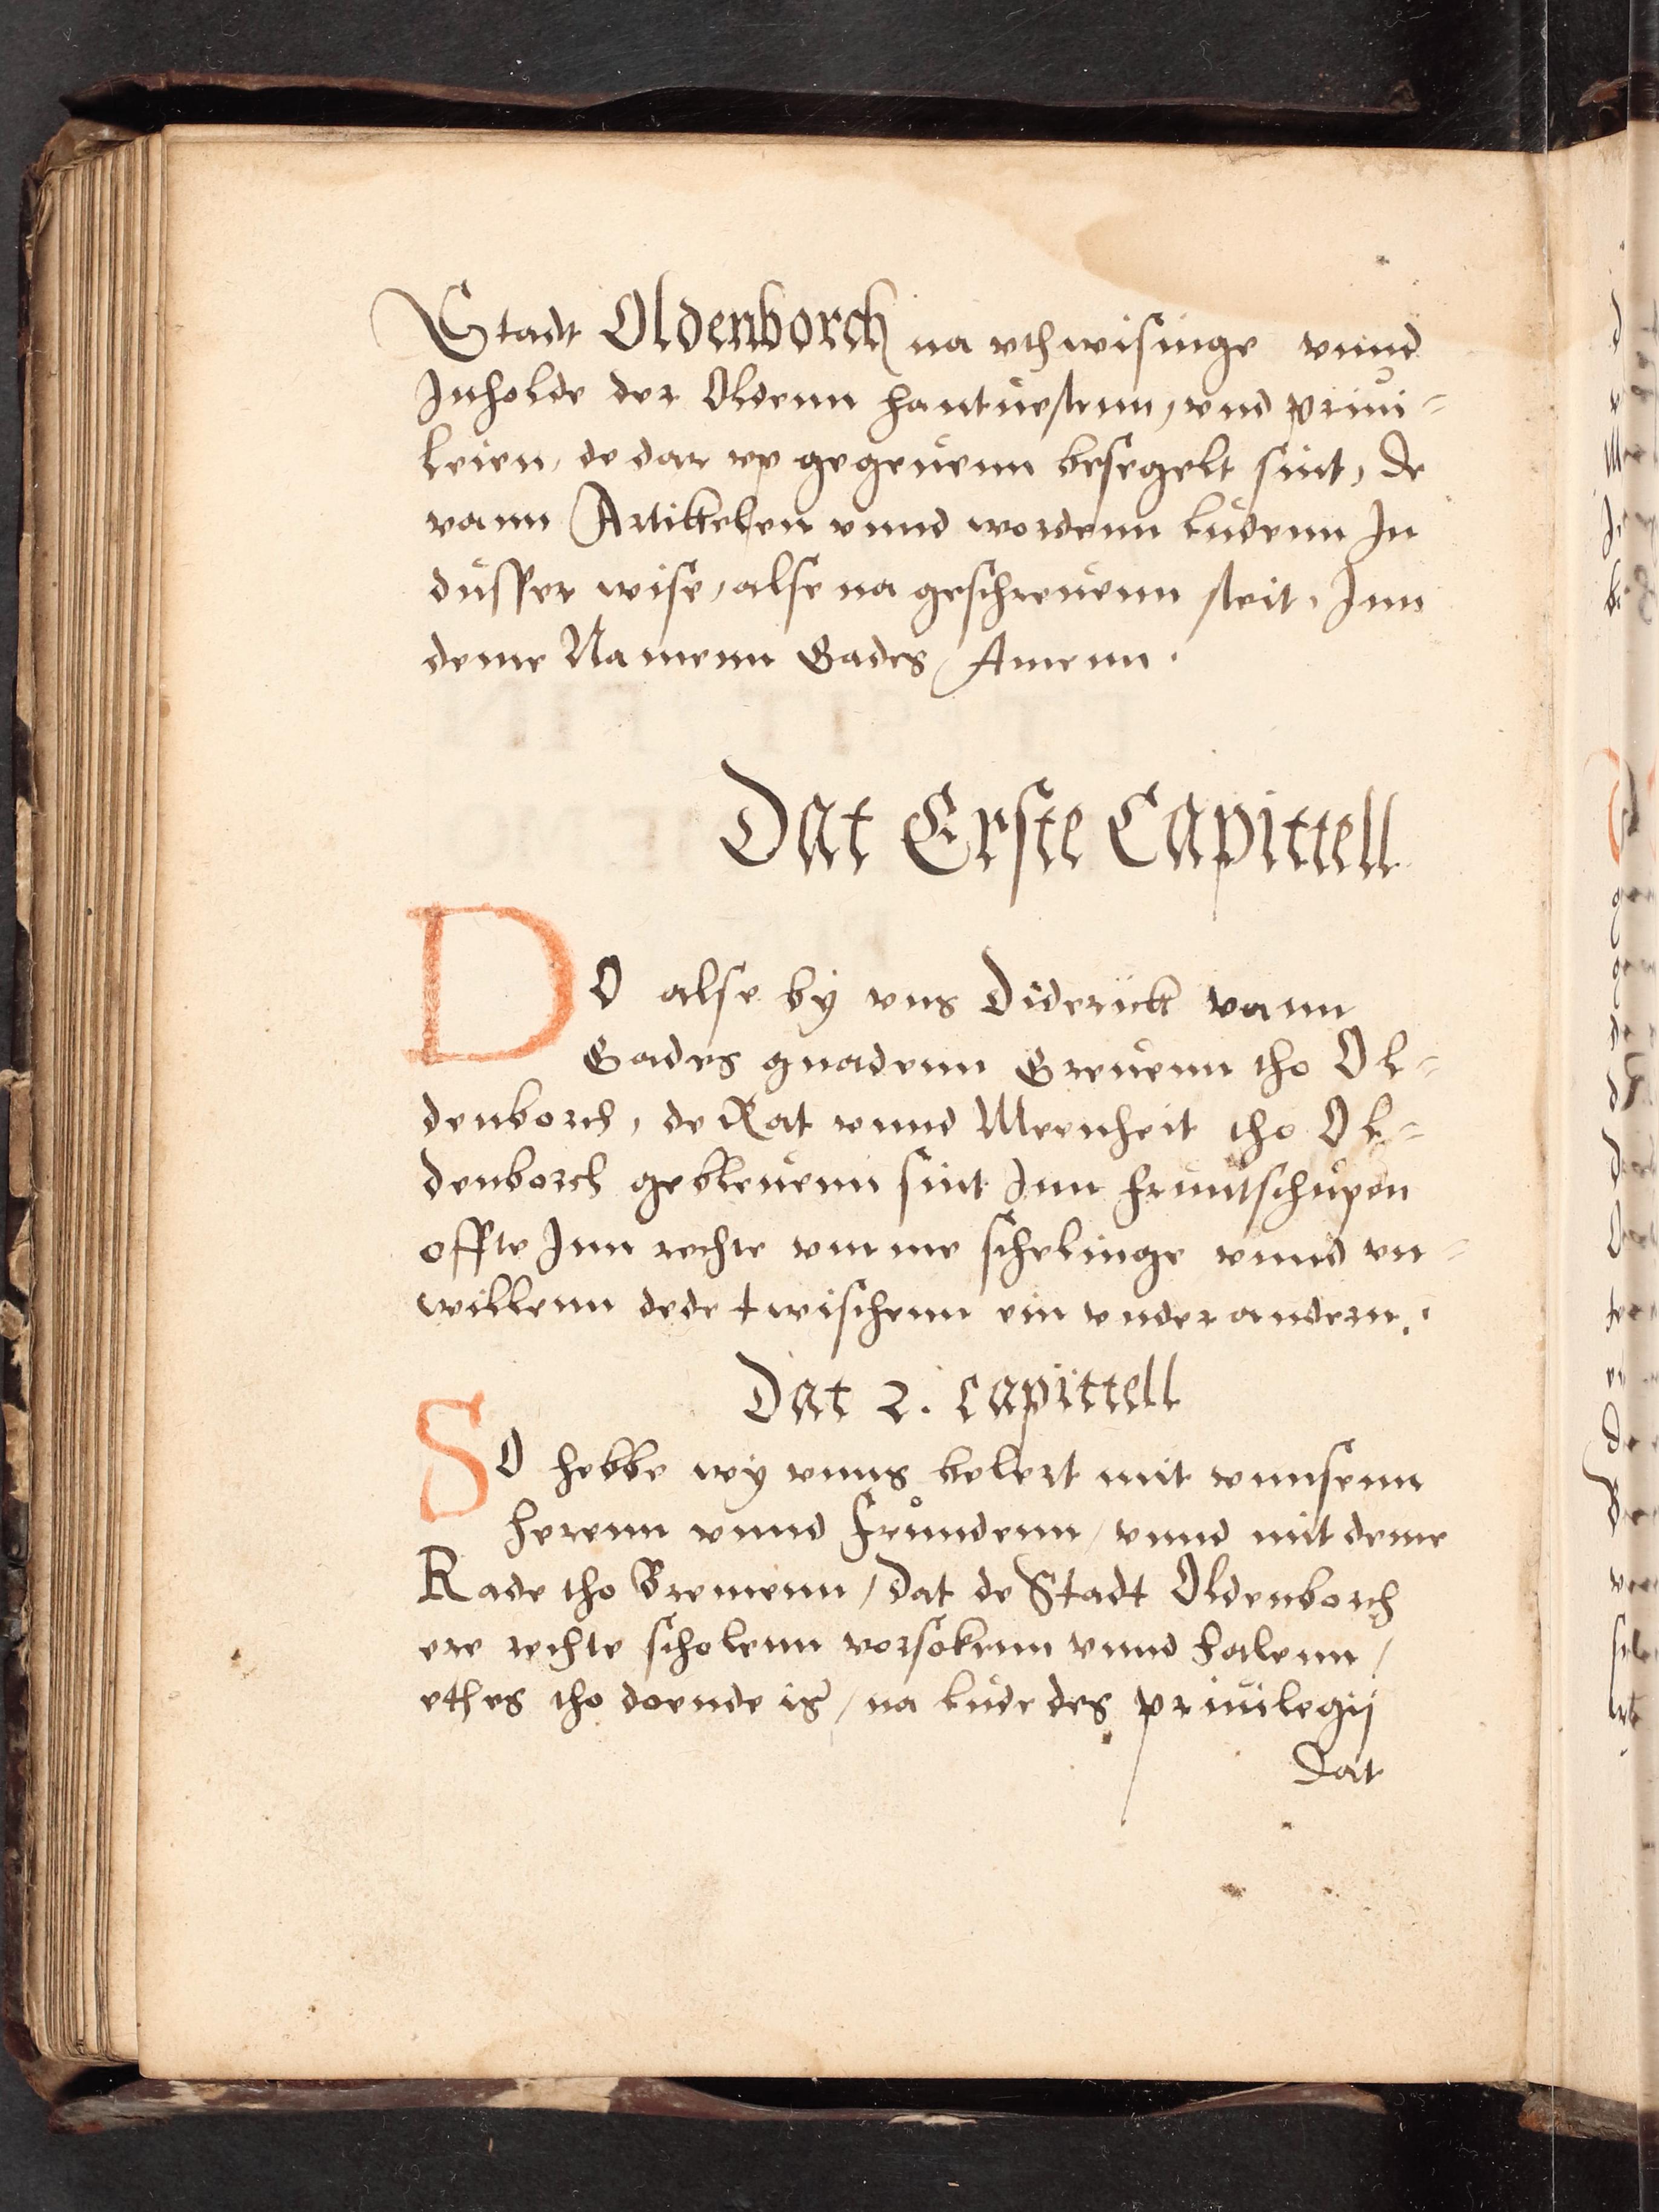 Stadt Oldenborch na vthwisinge vnnd
Inholde der Oldenn hantuestenn, vnd priui-
leien, de dar vp gegeuenn besegelt sint, de
vann Artikkelen vnnd wordenn ludenn In
dusser wise, alse na geschreuenn steit. Inn
deme Namenn Gades, Amenn.
Dat Erste Capittell
DO alse by vns Diderick vann
Gades gnadenn Greuenn tho Ol-
denborch, de Rat vnnd Meenheit tho Ol-
denborch gebleuenn sint Inn fruntschupen
offte Inn rechte vmme schelinge vnnd vn-
willenn dede twischenn ein vnder andern.
Dat 2. capittell
SO hebbe wy vnns belert mit vnnsenn
herenn vnnd frundenn, vnnd mit deme
Rade tho Bremenn / dat de Stadt Oldenborch
ere rechte scholenn vorsokenn vnnd halenn /
ethes tho doende is / na lude des priuilegij
Dat